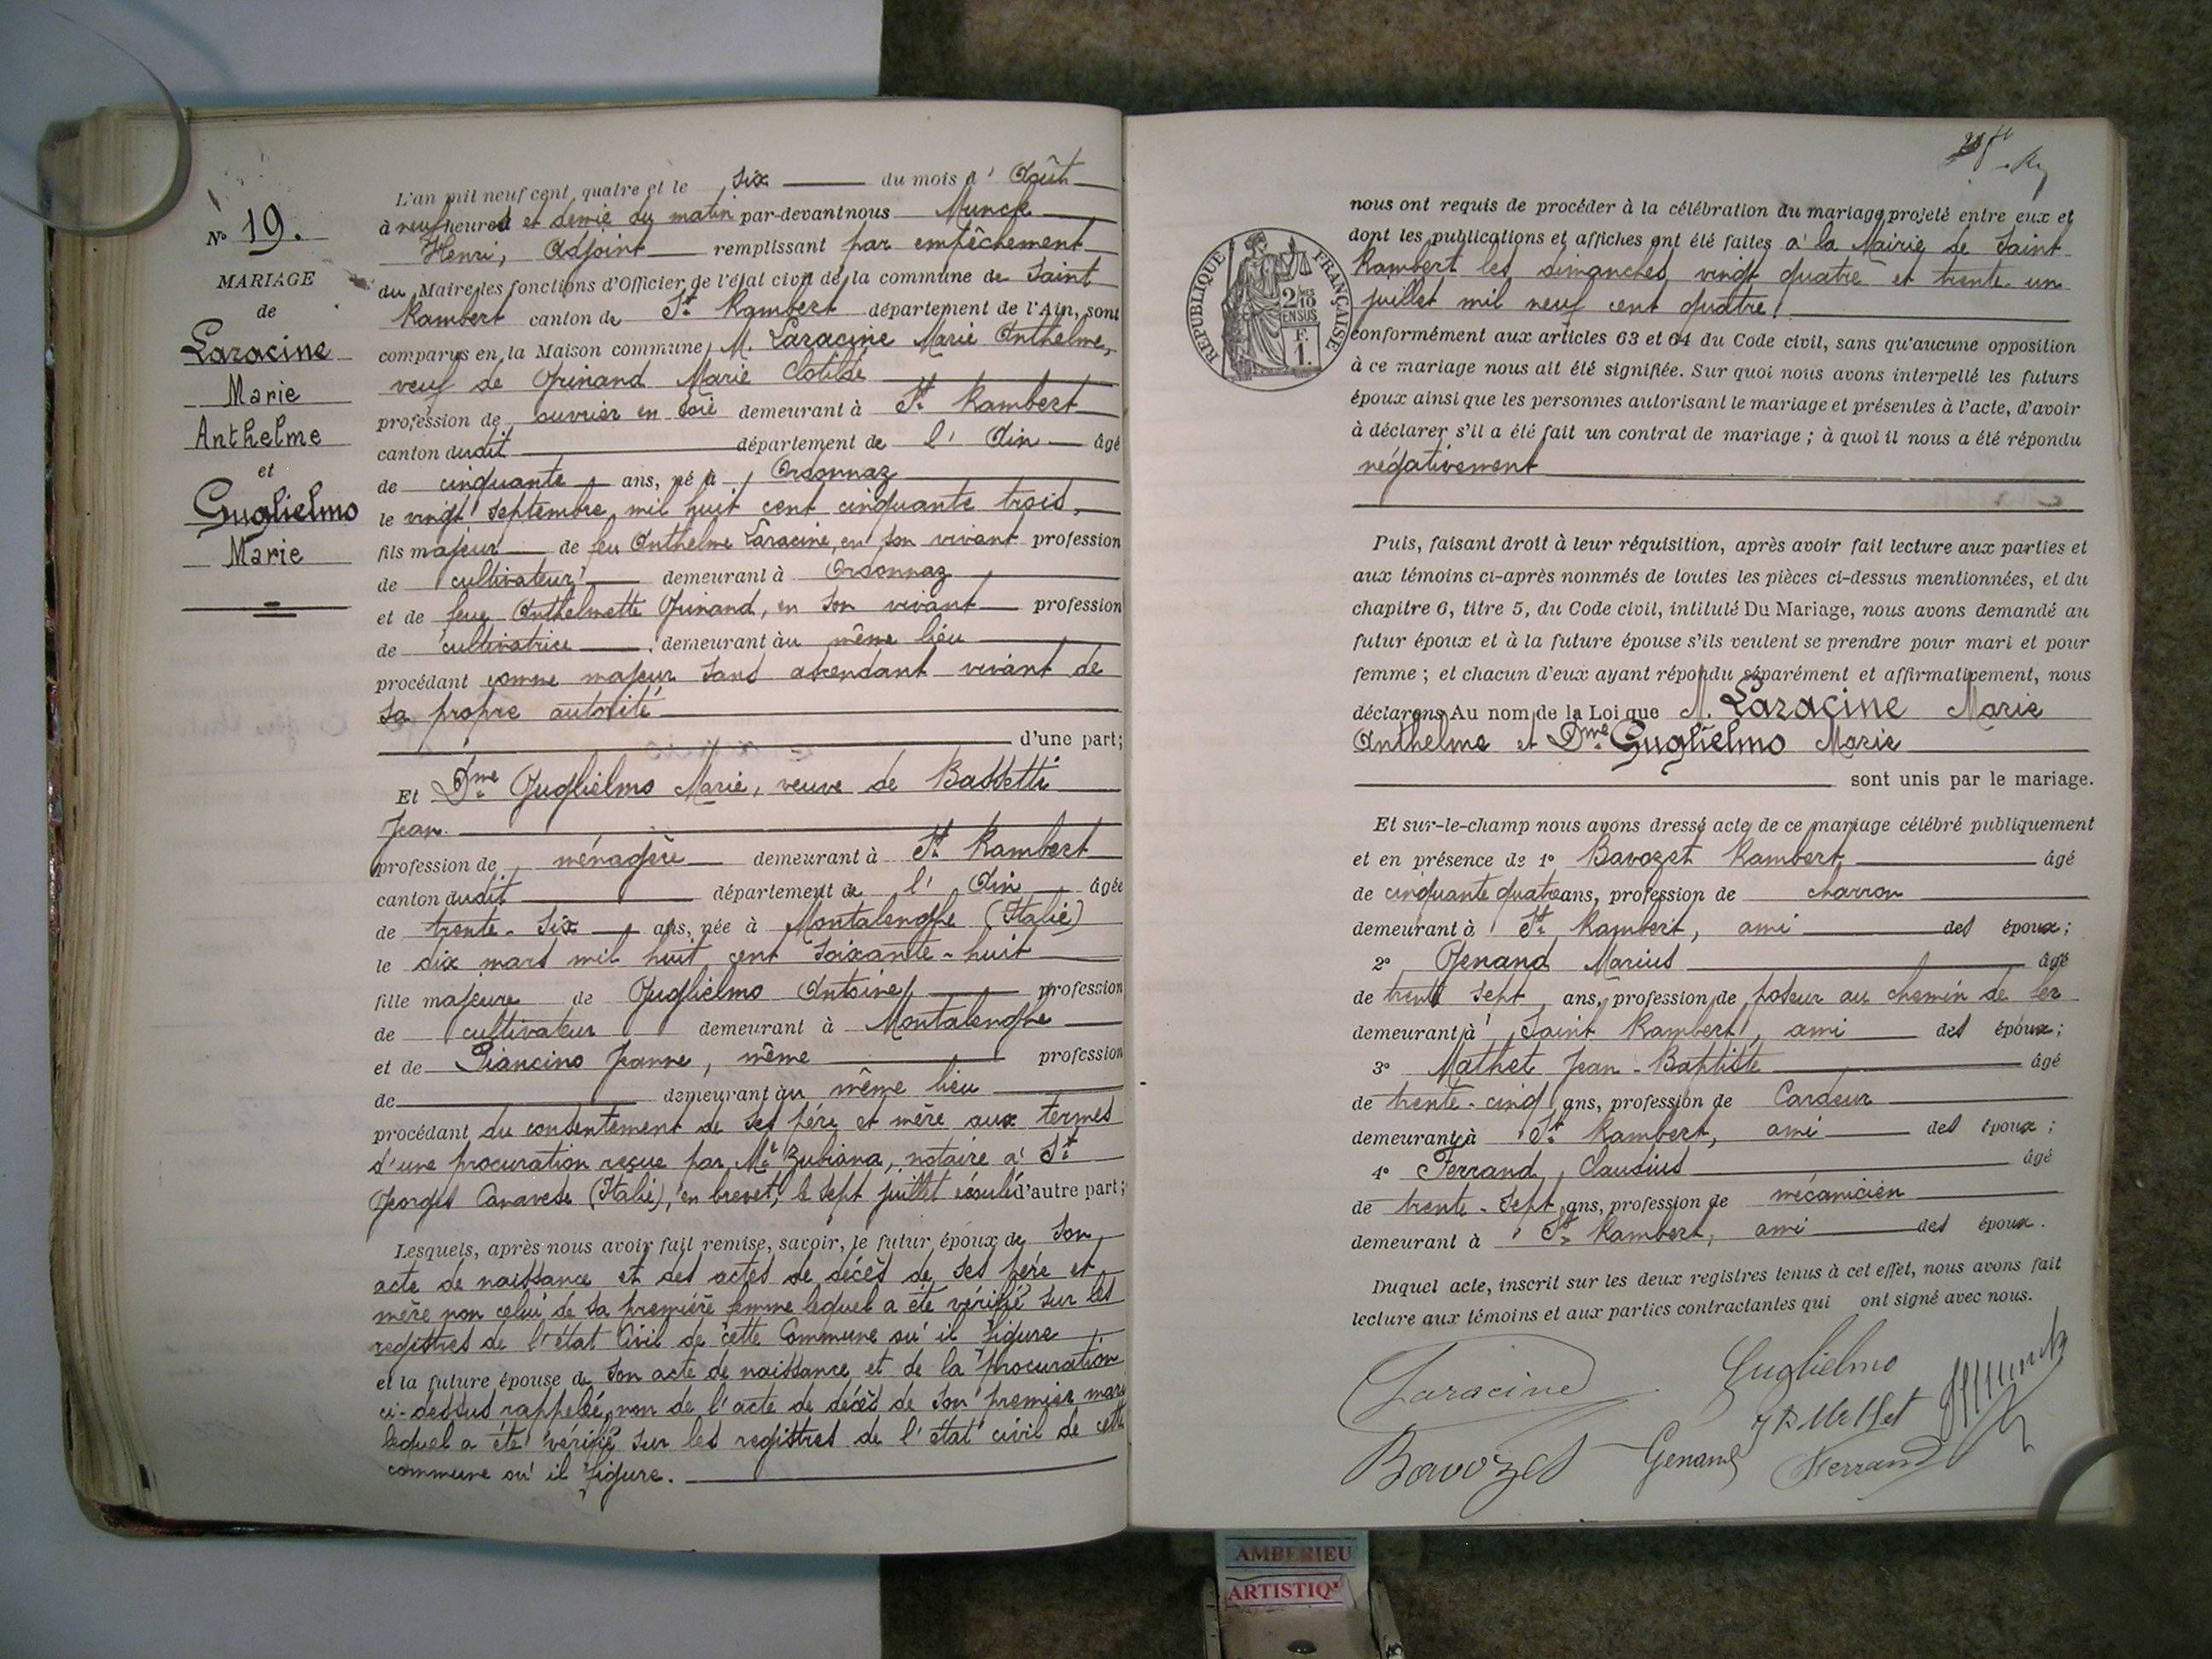 N° 19.
MARIAGE
de
Laracine
Marie
Anthelme
et
Guglielmo
Marie
L'an mil neuf cent quatre et le six du mois d'Août
à neuf heures et demie du matin par-devant nous Munck
Henri, Adjoint remplissant par empêchement
du Maire les fonctions d'Officier de l'état civil de la commune de Saint
Rambert canton de St Rambert département de l'Ain, sont
comparus en la Maison commune, M. Laracine Marie Anthelme,
veuf de Grinand Marie Clotilde
profession de ouvrier en soie demeurant à St Rambert
canton dudit département de l'Ain âgé
de cinquante ans, né à Ordonnaz
le vingt septembre mil huit cent cinquante trois,
fils majeur de feu Anthelme Laracine, en son vivant profession
de cultivateur demeurant à Ordonnaz
et de feue Anthelmette Grinand, en son vivant profession
de cultivatrice demeurant au même lieu
procédant comme majeur sans ascendant vivant de
sa propre autorité
d'une part;
Et Dme Guglielmo Marie, veuve de Bassetti
Jean.
profession de ménagère demeurant à St Rambert
canton dudit département de l'Ain âgée
de trente-six ans, née à Montalenghe (Italie)
le dix mars mil huit cent soixante-huit
fille majeure de Guglielmo Antoine, profession
de cultivateur demeurant à Montalenghe
et de Giancino Jeanne, même profession
de demeurant au même lieu
procédant du consentement de ses père et mère aux termes
d'une procuration reçue par Me Zubiana, notaire à St
Georges Canavese (Italie), en brevet, le sept juillet écoulé d'autre part;
Lesquels, après nous avoir fait remise, savoir, le futur époux de son
acte de naissance et des actes de décès de ses père et
mère non celui de sa première femme lequel a été vérifié sur les
registres de l'état Civil de cette Commune où il figure
et la future épouse de son acte de naissance et de la procuration
ci-dessus rappelée, non de l'acte de décès de son premier mari
lequel a été vérifié sur les registres de l'état civil de cette
commune où il figure.
RÉPUBLIQUE FRANÇAISE
2/10
EN SUS
F.
1.
nous ont requis de procéder à la célébration du mariage projeté entre eux et
dont les publications et affiches ont été faites à la Mairie de Saint
Rambert les dimanches vingt quatre et trente un
juillet mil neuf cent quatre,
conformément aux articles 63 et 64 du Code civil, sans qu'aucune opposition
à ce mariage nous ait été signifiée. Sur quoi nous avons interpellé les futurs
époux ainsi que les personnes autorisant le mariage et présentes à l'acte, d'avoir
à déclarer s'il a été fait un contrat de mariage; à quoi il nous a été répondu
négativement
Puis, faisant droit à leur réquisition, après avoir fait lecture aux parties et
aux témoins ci-après nommés de toutes les pièces ci-dessus mentionnées, et du
chapitre 6, titre 5, du Code civil, intitulé Du Mariage, nous avons demandé au
futur époux et à la future épouse s'ils veulent se prendre pour mari et pour
femme; et chacun d'eux ayant répondu séparément et affirmativement, nous
déclarons Au nom de la Loi que M. Laracine Marie
Anthelme et Dme Guglielmo Marie
sont unis par le mariage.
Et sur-le-champ nous avons dressé acte de ce mariage célébré publiquement
et en présence de 1° Bavozet Rambert, âgé
de cinquante quatre ans, profession de charron
demeurant à St Rambert, ami des époux;
2° Genand Marius âgé
de trente sept ans, profession de poseur au chemin de fer
demeurant à Saint Rambert, ami des époux;
3° Mathet Jean-Baptiste âgé
de trente-cinq ans, profession de Cardeur
demeurant à St Rambert, ami des époux;
4° Ferrand, Claudius âgé
de trente-sept ans, profession de mécanicien
demeurant à St Rambert, ami des époux.
Duquel acte, inscrit sur les deux registres tenus à cet effet, nous avons fait
lecture aux témoins et aux parties contractantes qui ont signé avec nous.
Laracine Guglielmo
Bavozet Genand Ferrand
AMBERIEU
ARTISTIQ